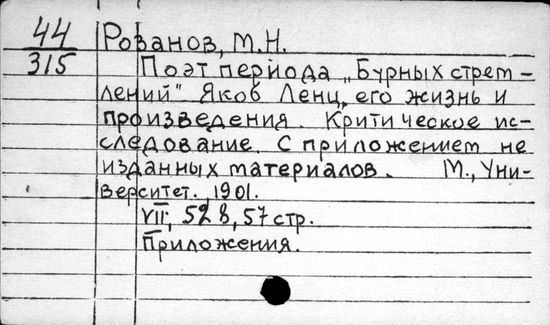 44 Розанов, М.Н.
315 Поэт периода „Бурных стрем-
лений" Яков Ленц, его жизнь и
произведения. Критическое ис-
следование. С приложением не
изданных материалов. М., Уни-
верситет, 1901.
VII, 528, 57 стр.
Приложения.